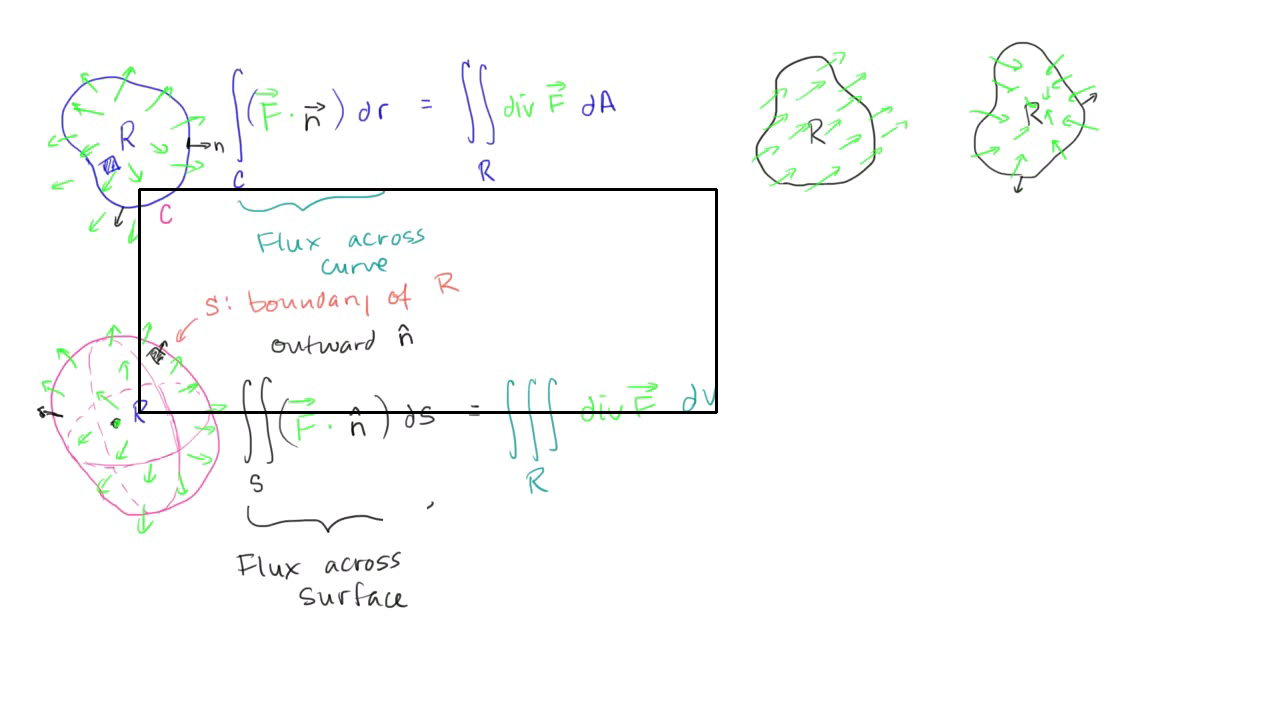 R
n
C
∫_C (F⃗ · n⃗) dr = ∬_R div F⃗ dA
R
R
Flux across
curve
S: boundary of R
outward n̂
R
∬_S (F⃗ · n̂) ds = ∭_R div F⃗ dV
Flux across
surface